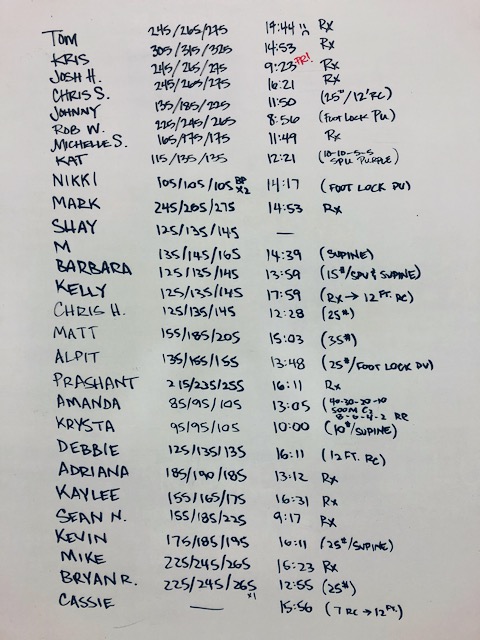 TOM 245/265/275 19:44 Rx
KRIS 305/315/325 14:53 Rx
JOSH H. 245/265/275 9:23 PR! Rx
CHRIS S. 245/265/275 16:21 Rx
JOHNNY 135/185/225 11:50 (25#/12' RC)
ROB W. 225/245/265 8:56 (FOOT LOCK PU)
MICHELLE S. 165/175/175 11:49 Rx
KAT 115/135/135 12:21 (10-10-5-5 SPU PURPLE)
NIKKI 105/105/105 BP x2 14:17 (FOOT LOCK PU)
MARK 245/265/275 14:53 Rx
SHAY 125/135/145 —
M 135/145/165 14:39 (SUPINE)
BARBARA 125/135/145 13:59 (15#/SPU & SUPINE)
KELLY 125/135/145 17:59 (Rx → 12 FT. RC)
CHRIS H. 125/135/145 12:28 (25#)
MATT 155/185/205 15:03 (35#)
ALPIT 135/155/155 13:48 (25#/FOOT LOCK PU)
PRASHANT 215/235/255 16:11 Rx
AMANDA 85/95/105 13:05 (40-30-20-10 500M C2 8-6-4-2 RR
KRYSTA 95/95/105 10:00 (10#/SUPINE)
DEBBIE 125/135/135 16:11 (12 FT. RC)
ADRIANA 185/190/185 13:12 Rx
KAYLEE 155/165/175 16:31 Rx
SEAN N. 155/185/225 9:17 Rx
KEVIN 175/185/195 16:11 (25#/SUPINE)
MIKE 225/245/265 15:23 Rx
BRYAN R. 225/245/265 x1 12:55 (25#)
CASSIE — 15:56 (7 RC → 12 FT.)